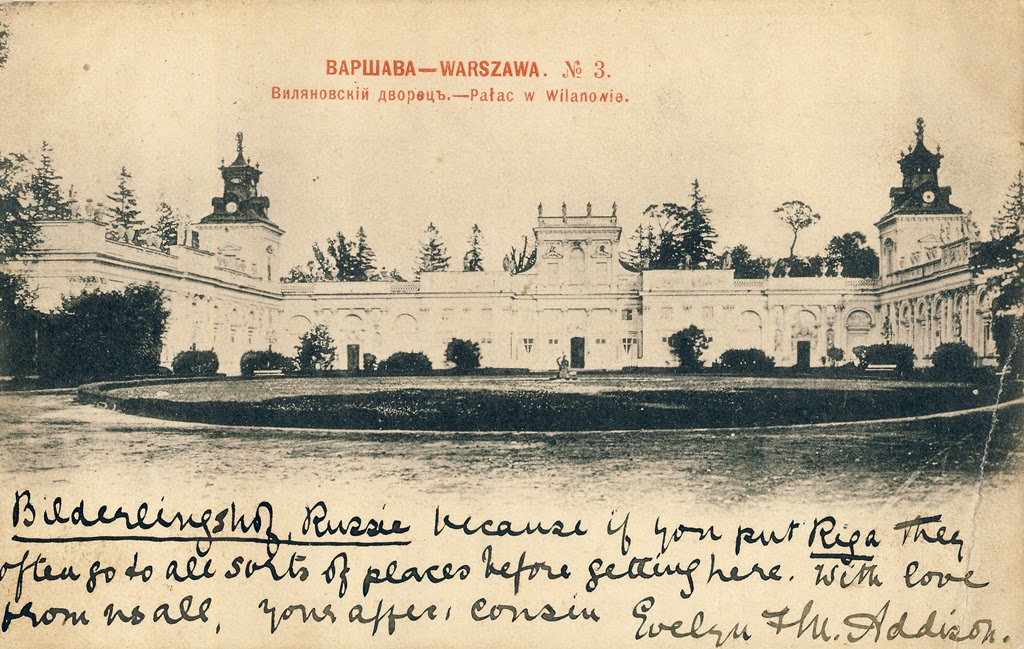 ВАРШАВА—WARSZAWA. № 3.
Виляновскій дворецъ.—Pałac w Wilanowie.
Bilderlingshof, Russie because if you put Riga they
often go to all sorts of places before getting here. With love
from us all, your affec: cousin Evelyn F M. Addison.